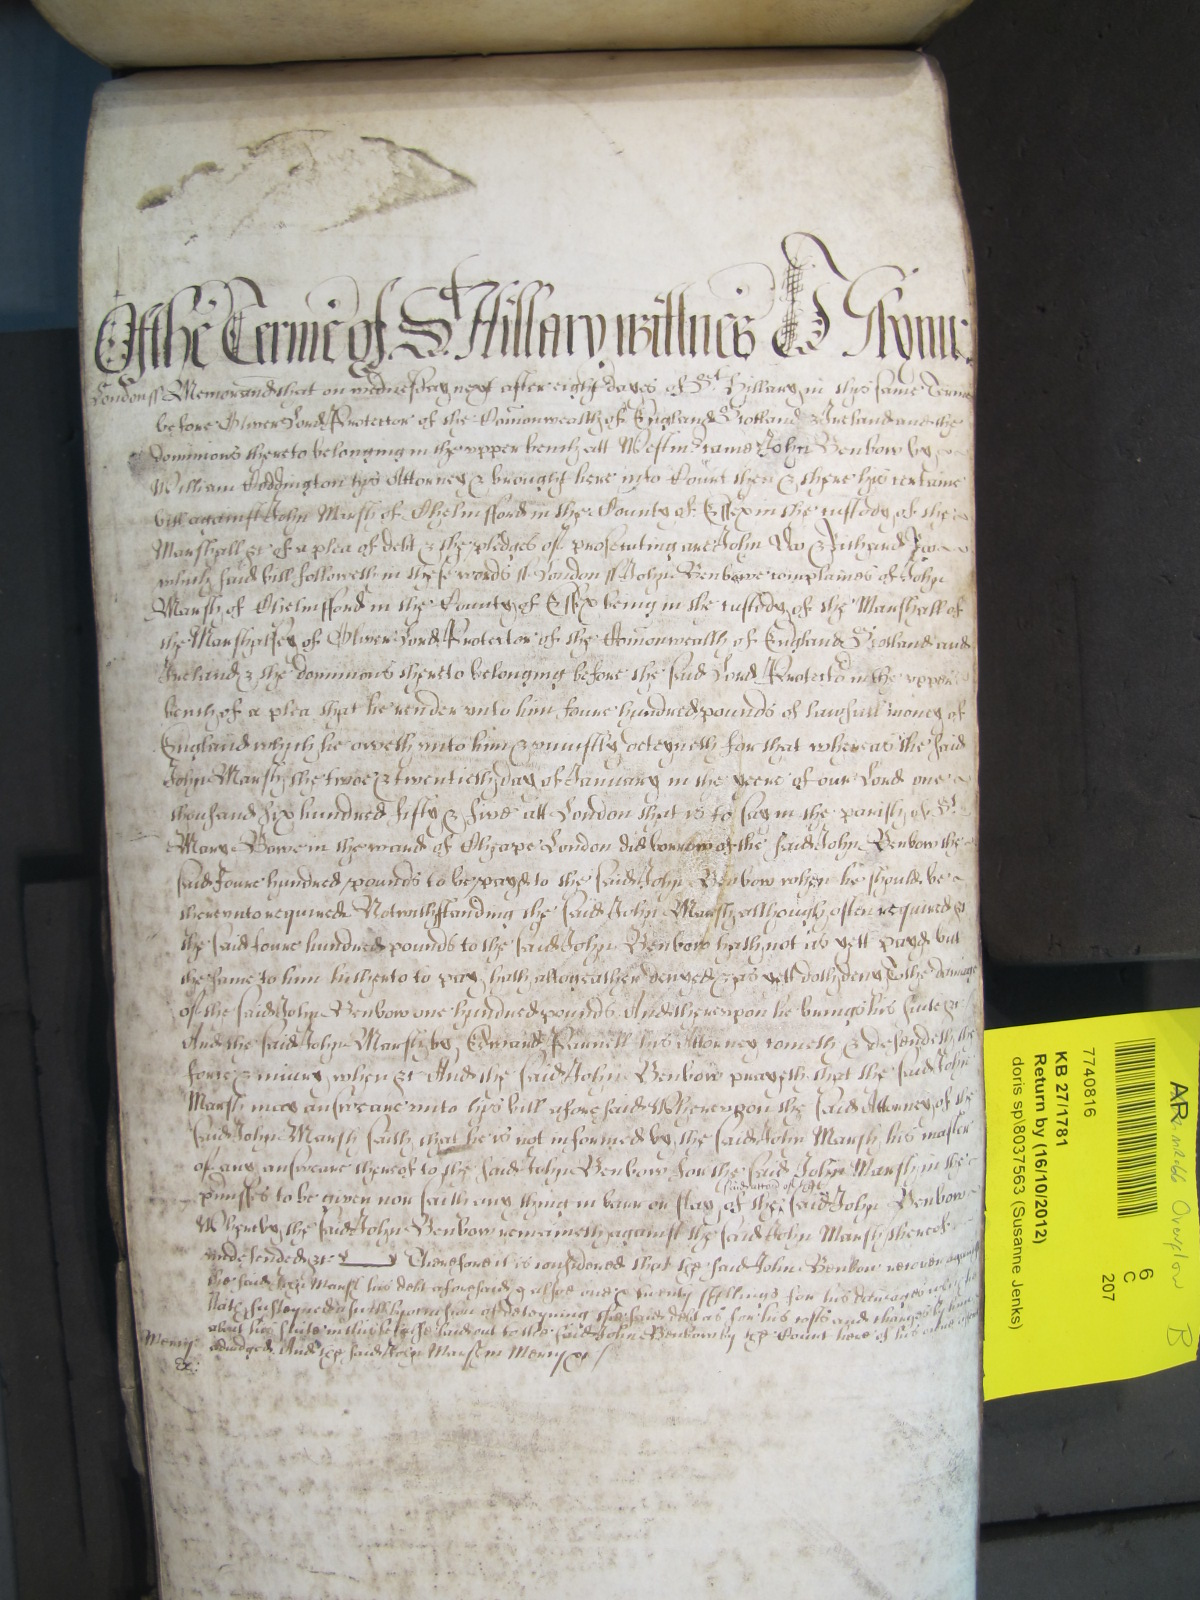 Of the Terme of St Hillary wittnes
London ss Memorand that on wednesday next after eight dayes of St Hillary in this same Terme
before Oliver Lord Protector of the Comonwealth of England Scotland & Ireland and the
dominions thereto belonging in the upper bench att Westm came John Benbow by
William Coddington his Attorney & brought here into Court then & there his certaine
bill against John Marsh of Chelmsford in the County of Essex in the custody of the
Marshall &c of a plea of debt & the pledges of prosecuting are John Doo & Richard Roo
which said bill followeth in these words ss London ss John Benbow complaines of John
Marsh of Chelmsford in the County of Essex being in the custody of the Marshall of
the Marshalsey of Oliver Lord Protector of the Comonwealth of England Scotland and
Ireland & the dominions thereto belonging before the said Lord Protector in the upper
bench of a plea that he render unto him foure hundred pounds of lawfull money of
England which he oweth unto him & uniustly deteyneth for that whereas the said
John Marsh the twoe & twentieth day of January in the yeere of our Lord one
thousand six hundred fifty & five att London that is to say in the parish of St
Mary Bowe in the ward of Cheape London did borrow of the said John Benbow the
said foure hundred pounds to be payd to the said John Benbow when he should be
thereunto required Notwithstanding the said John Marsh although often required &c
the said foure hundred pounds to the said John Benbow hath not as yett payd but
the same to him hitherto to pay hath altogeather denyed & as yett doth deny To the damage
of the said John Benbow one hundred pounds And thereupon he brings his suite &c
And the said John Marsh by Edward Parnell his Attorney cometh & defendeth the
force & iniury when &c And the said John Benbow prayeth that the said John
Marsh may answeare unto his bill aforesaid Whereupon the said Attorney of the
said John Marsh saith that he is not informed by the said John Marsh his master
of any answeare thereof to the said John Benbow for the said John Marsh in the
pmisses to be given nor saith any thing in barr or stay of the said accon of the said John Benbow
Whereby the said John Benbow remaineth against the said John Marsh thereof
undefended &c Therefore it is considered that the said John Benbow recover against
the said John Marsh his debt aforesaid & alsoe one & twenty shillings for his damages which he
hath susteyned aswell by occasion of deteyning the said debt as for his costs and charges by him
about his suite in this behalfe laid out to the said John Benbow by the Court here of his
adiudged And the said John Marsh in Mercy &c
Mercy
&c
7740816
KB 27/1781
Return by (16/10/2012)
doris sp\8037563 (Susanne Jenks)
6
C
207